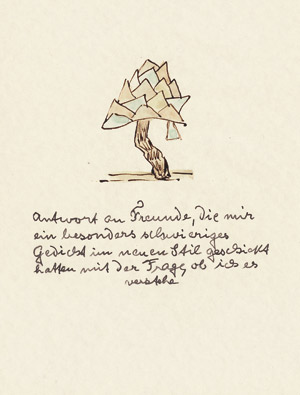 Antwort an Freunde, die mir
ein besonders schwieriges
Gedicht im neuen Stil geschickt
hatten mit der Frage, ob ich es
verstehe